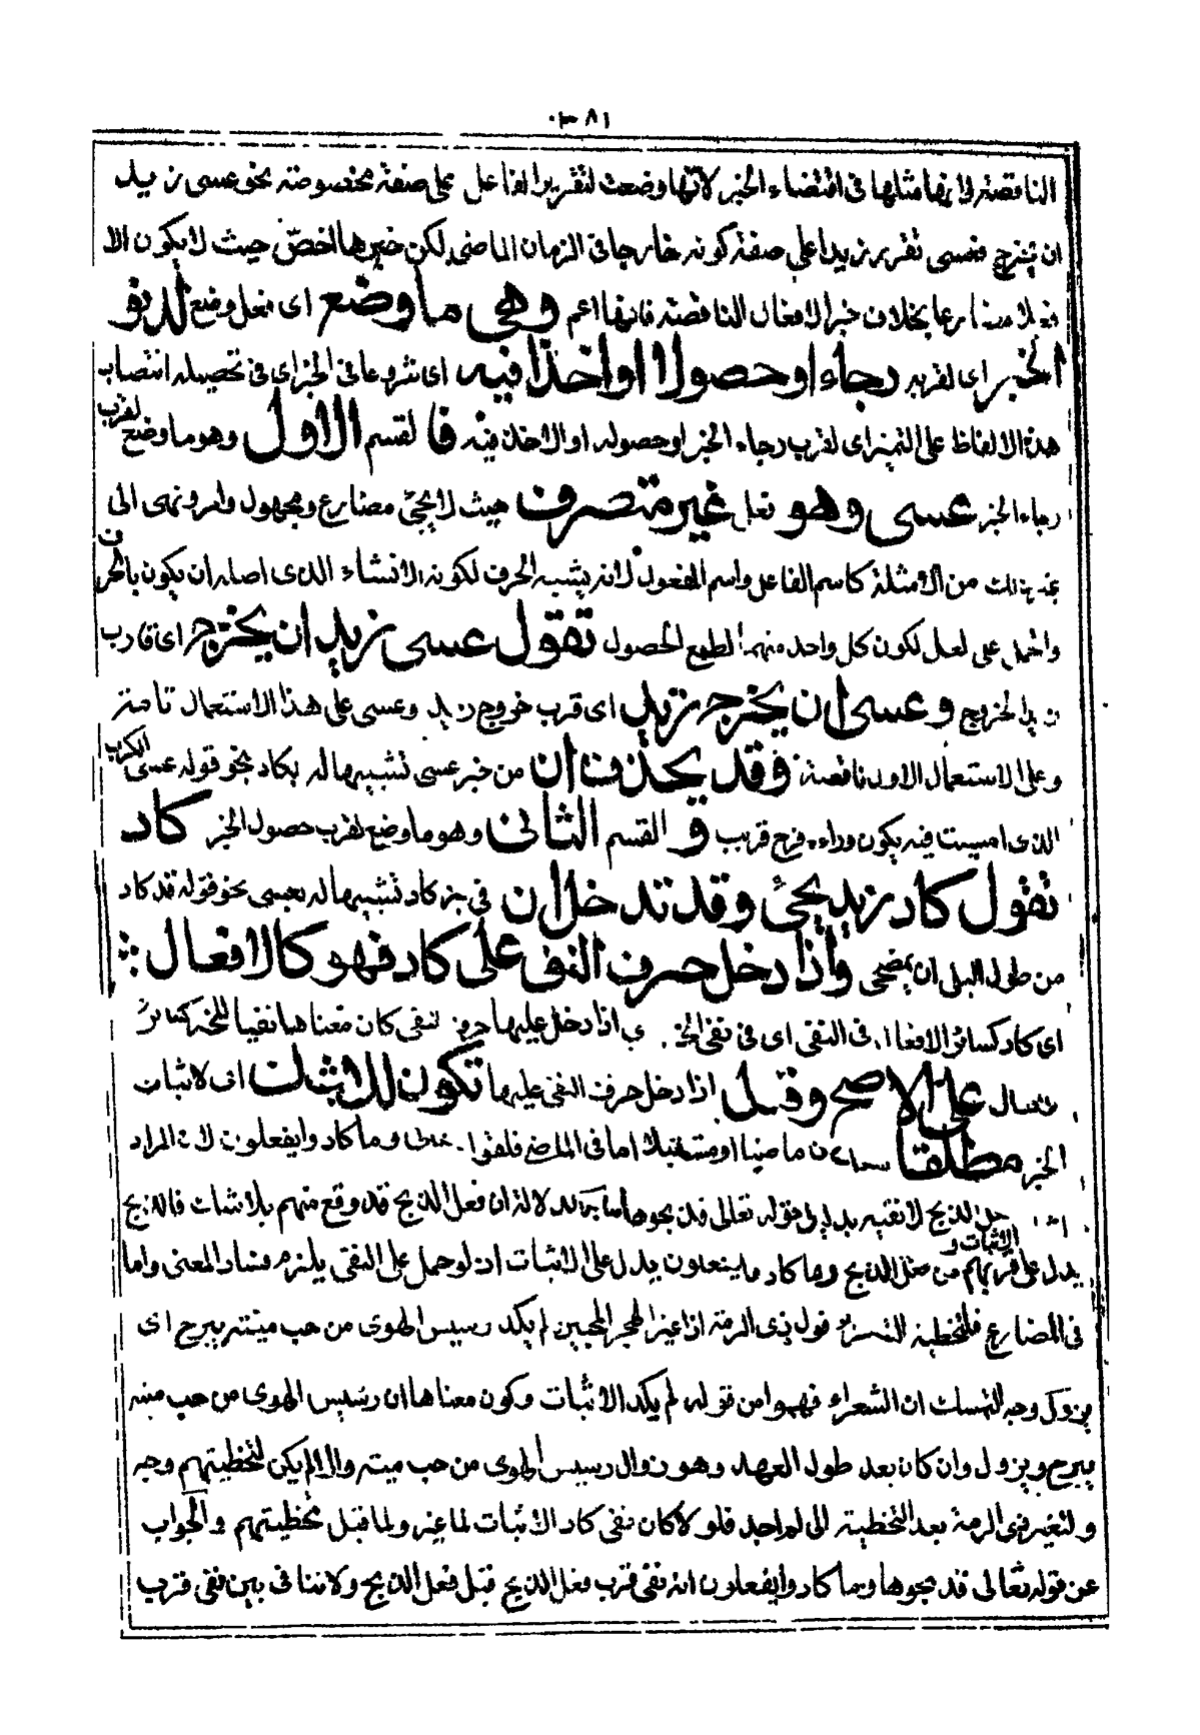 ٣٨١
الناقصة لانها مثلها فى اقتضاء الخبر لانها وضعت لتقرير الفاعل على صفة مخصوصة نحو عسى زيد
ان يخرج فعسى تقرير زيدا على صفة كونه خارجا فى الزمان الماضى لكن خبرها اخص حيث لا يكون الا
فعلا مضارعا بخلاف خبر الافعال الناقصة فانها اعم وهى ما وضع اى فعل وضع لدنو
الخبر اى لقربه رجاء او حصولا او اخذا فيه اى شروعا فى الخبر اى فى تحصيله انتصاب
هذه الالفاظ على التميز اى لقرب رجاء الخبر او حصوله او الاخذ فيه فالقسم الاول وهو ما وضع لقرب
رجاء الخبر عسى وهو فعل غير متصرف حيث لا يجئ مضارع ومجهول وامر ونهى الى
غير ذلك من الامثلة كاسم الفاعل واسم المفعول لانه يشبه الحرف لكونه لانشاء الذى اصله ان يكون بالحرف
واحمل على لعل لكون كل واحد منهما لطمع الحصول تقول عسى زيد ان يخرج اى قارب
زيد الخروج وعسى ان يخرج زيد اى قرب خروج زيد وعسى على هذا الاستعمال تامة
وعلى الاستعمال الاول ناقصة وقد يحذف ان من خبر عسى تشبيها له بكاد نحو قوله عسى الكرب
الذى امسيت فيه يكون وراءه فرج قريب والقسم الثانى وهو ما وضع لقرب حصول الخبر كاد
تقول كاد زيد يجئ وقد تدخل ان فى خبر كاد تشبيها له بعسى نحو قوله قد كاد
من طول البلى ان يمصحى واذا دخل حرف النفى على كاد فهو كالافعال
اى كاد كسائر الافعال فى النفى اى فى نفى الخبر اذا دخل عليها حرف النفى كان معناها نفيا للخبر كسائر
الافعال على الاصح وقيل اذا دخل حرف النفى عليها تكون للاثبات اى لاثبات
الخبر مطلقا سواء كان ماضيا او مستقبلا اما فى الماضى فلقوله وما كادوا يفعلون لان المراد
الذبح لا نفيه بدليل قوله تعالى فذبحوها دلالة ان فعل الذبح قد وقع منهم بلا شبات فالذبح
يدل على قربهم من فعل الذبح وما كادوا يفعلون يدل على الاثبات اذ لو حمل على النفى يلزم فساد المعنى واما
فى المضارع فلتخطية الشعراء قول ذى الرمة اذا غير الهجر المحبين لم يكد رسيس الهوى من حب ميته يبرح اى
يزول وجه التمسك ان الشعراء فهموا من قوله لم يكد الاثبات وكون معناها ان رسيس الهوى من حب ميته
يبرح ويزول وان كان بعد طول العهد وهو زوال رسيس الهوى من حب ميته والا لم يكن لتخطيتهم وجه
ولتغير ذى الرمة بعد التخطية الى لم اجد فلو لا كان نفى كاد الاثبات لما غير ولما قبل تخطيتهم والجواب
عن قوله تعالى فذبحوها وما كادوا يفعلون انه نفى قرب فعل الذبح قبل فعل الذبح ولا تنافى بين نفى قرب